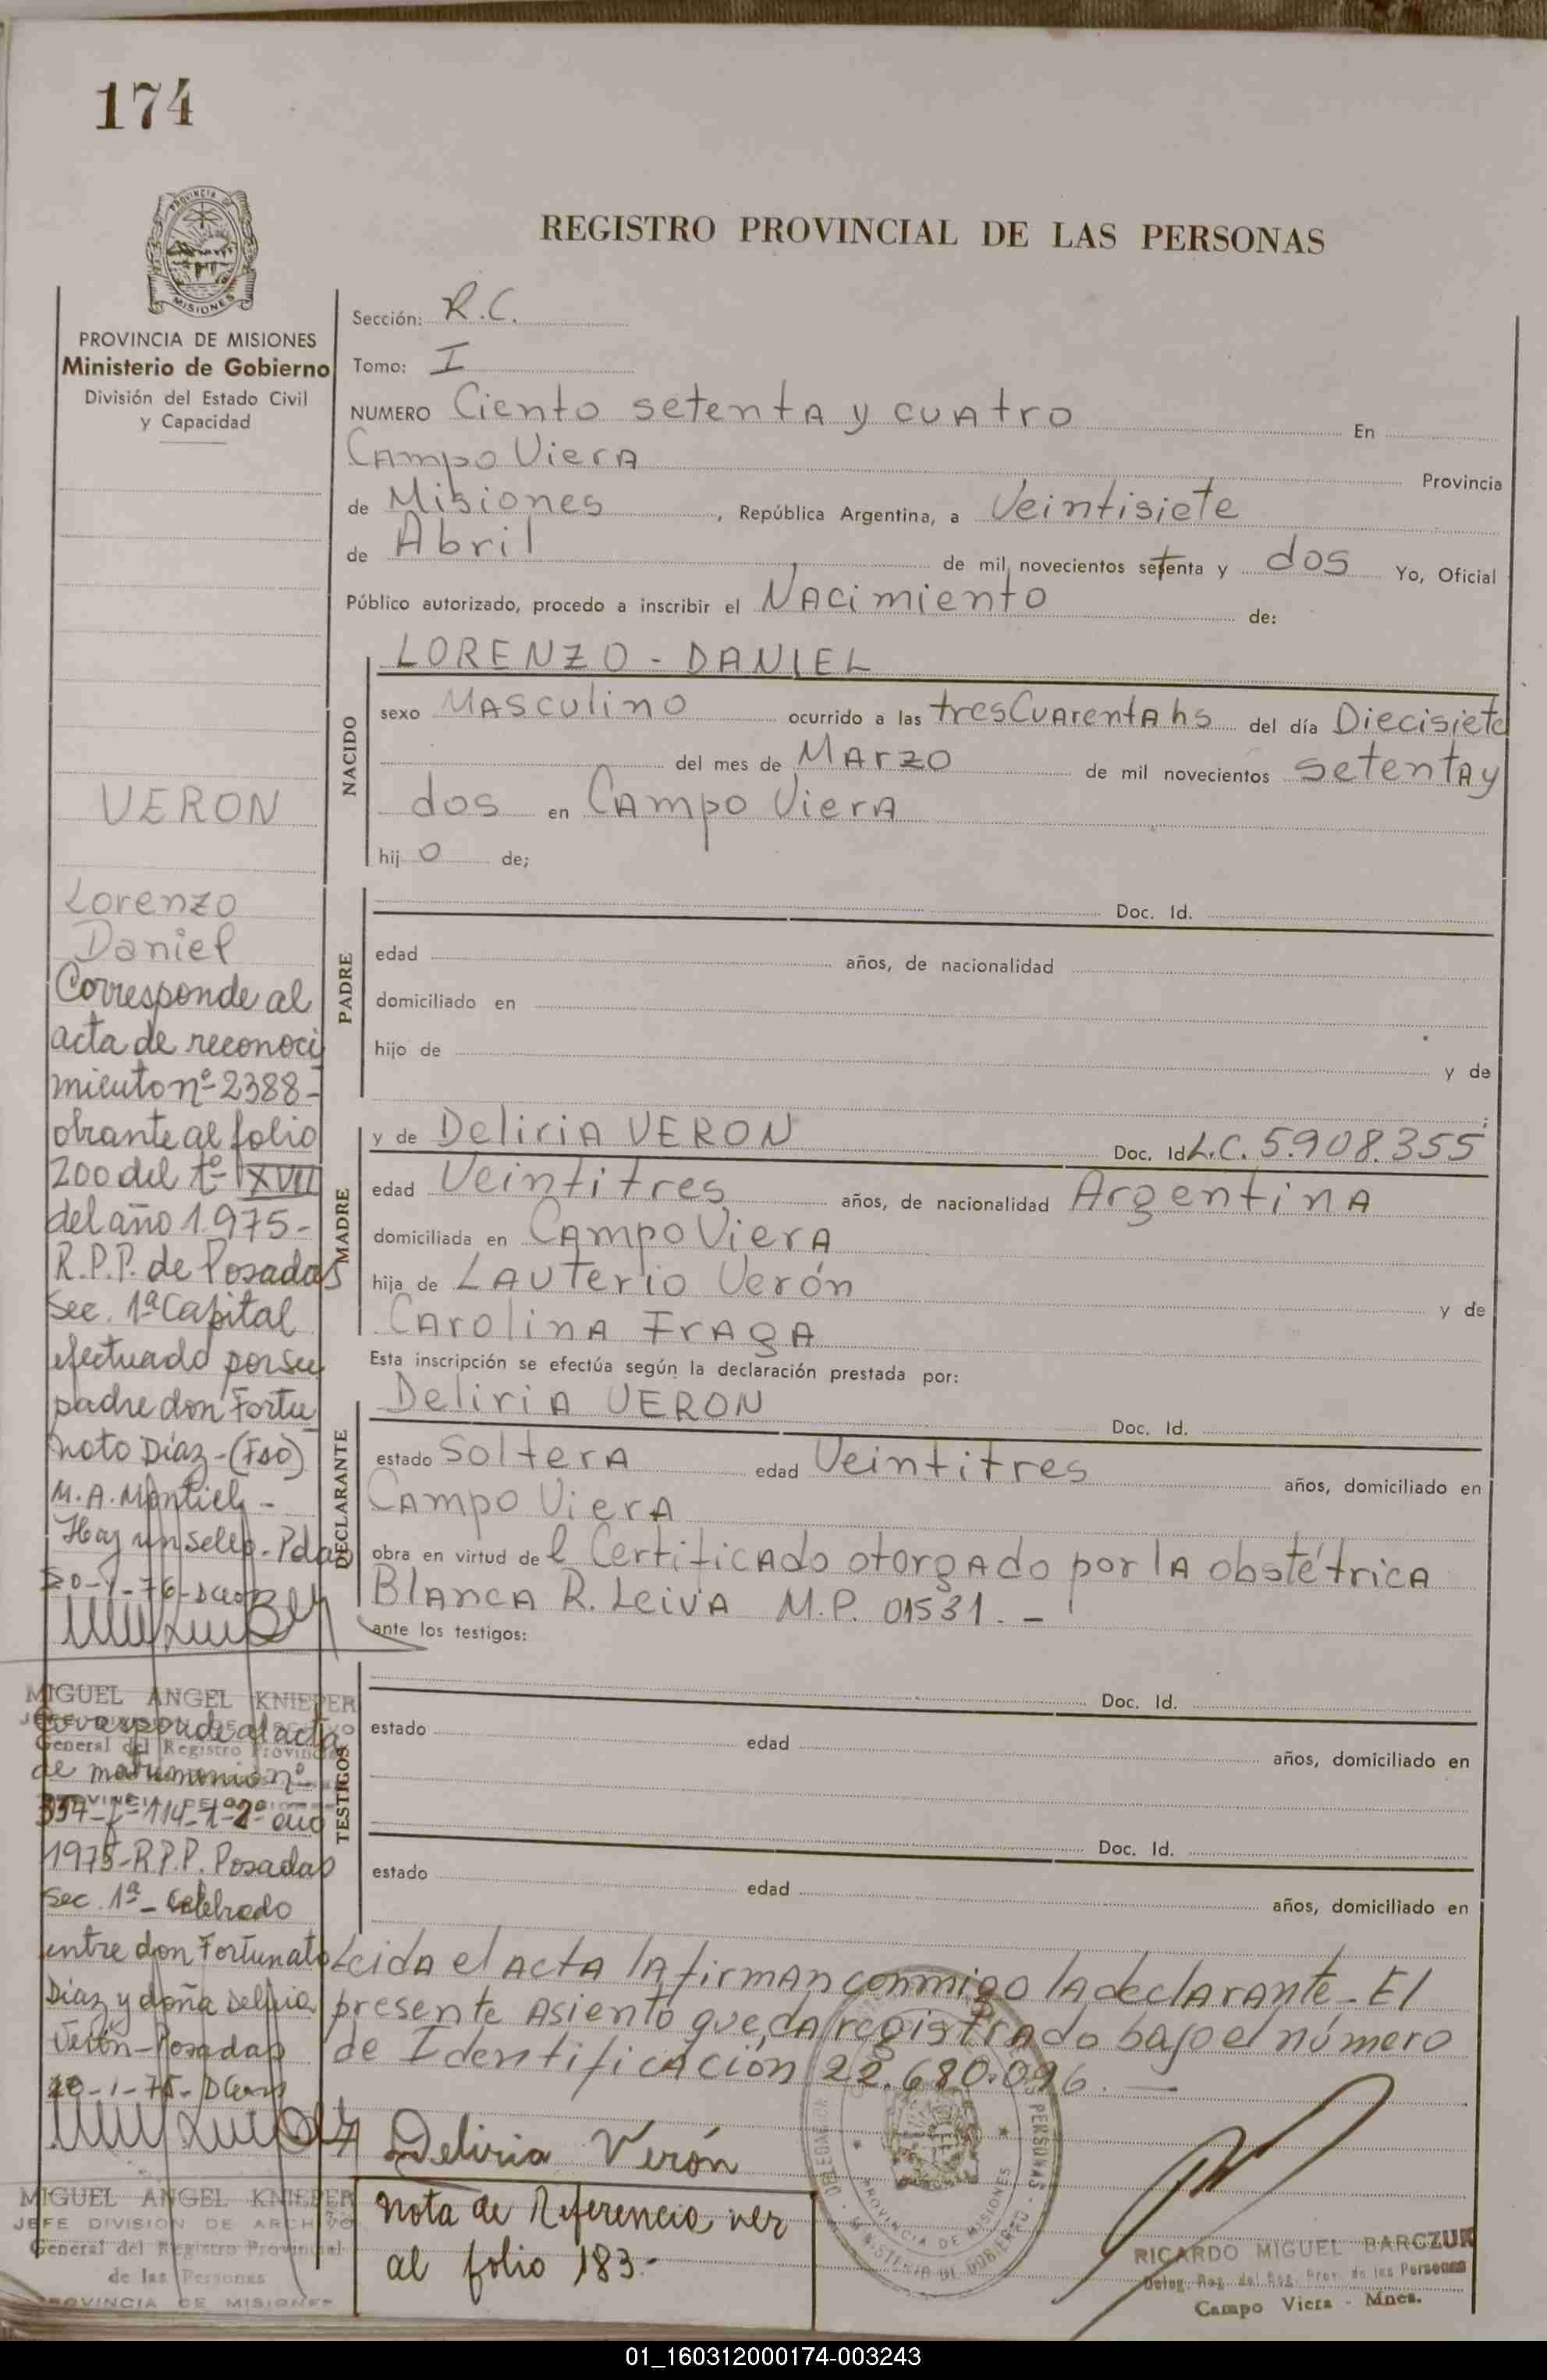 174
PROVINCIA DE MISIONES
Ministerio de Gobierno
División del Estado Civil
y Capacidad
REGISTRO PROVINCIAL DE LAS PERSONAS
Sección: R.C.
Tomo: I
NUMERO Ciento setenta y cuatro En
Campo Viera Provincia
de Misiones, República Argentina, a Veintisiete
de Abril de mil novecientos setenta y dos Yo, Oficial
Público autorizado, procedo a inscribir el Nacimiento de:
NACIDO
LORENZO - DANIEL
sexo Masculino ocurrido a las tres Cuarenta hs del día Diecisiete
del mes de Marzo de mil novecientos setenta y
dos en Campo Viera
hijo de;
PADRE
Doc. Id.
edad años, de nacionalidad
domiciliado en
hijo de
y de
MADRE
y de Deliria VERON Doc. Id L.C. 5.908.355
edad Veintitres años, de nacionalidad Argentina
domiciliada en Campo Viera
hija de Lauterio Verón y de
Carolina Fraga
Esta inscripción se efectúa según la declaración prestada por:
DECLARANTE
Deliria VERON Doc. Id.
estado Soltera edad Veintitres años, domiciliado en
Campo Viera
obra en virtud de l Certificado otorgado por la obstétrica
Blanca R. Leiva M.P. 01531. -
ante los testigos:
TESTIGOS
Doc. Id.
estado edad años, domiciliado en
Doc. Id.
estado edad años, domiciliado en
Leida el acta la firman conmigo la declarante - El
presente Asiento queda registrado bajo el número
de Identificación 22.680.096. -
Deliria Verón
Nota de Referencia ver
al folio 183.-
PROVINCIA DE MISIONES
RICARDO MIGUEL BARCZUK
Deleg. Reg. del Reg. Prov. de las Personas
Campo Viera - Mnes.
VERON
Lorenzo
Daniel
Corresponde al
acta de reconoci
miento nº 2388-
obrante al folio
200 del tº XVII
del año 1.975-
R.P.P. de Posadas
Sec. 1ª Capital
efectuado por su
padre don Fortu
noto Díaz - (Fdo)
M.A. Montiel -
Hay un sello - Pdas
MIGUEL ANGEL KNIEPER
General del Registro Provincial
Corresponde al acta
de matrimonio nº
1975 - R.P.P. Posadas
Sec. 1ª - celebrado
entre don Fortunato
Díaz y doña
Verón - Posadas
MIGUEL ANGEL KNIEPER
JEFE DIVISION DE ARCHIVO
General del Registro Provincial
de las Personas
PROVINCIA DE MISIONES
01_160312000174-003243